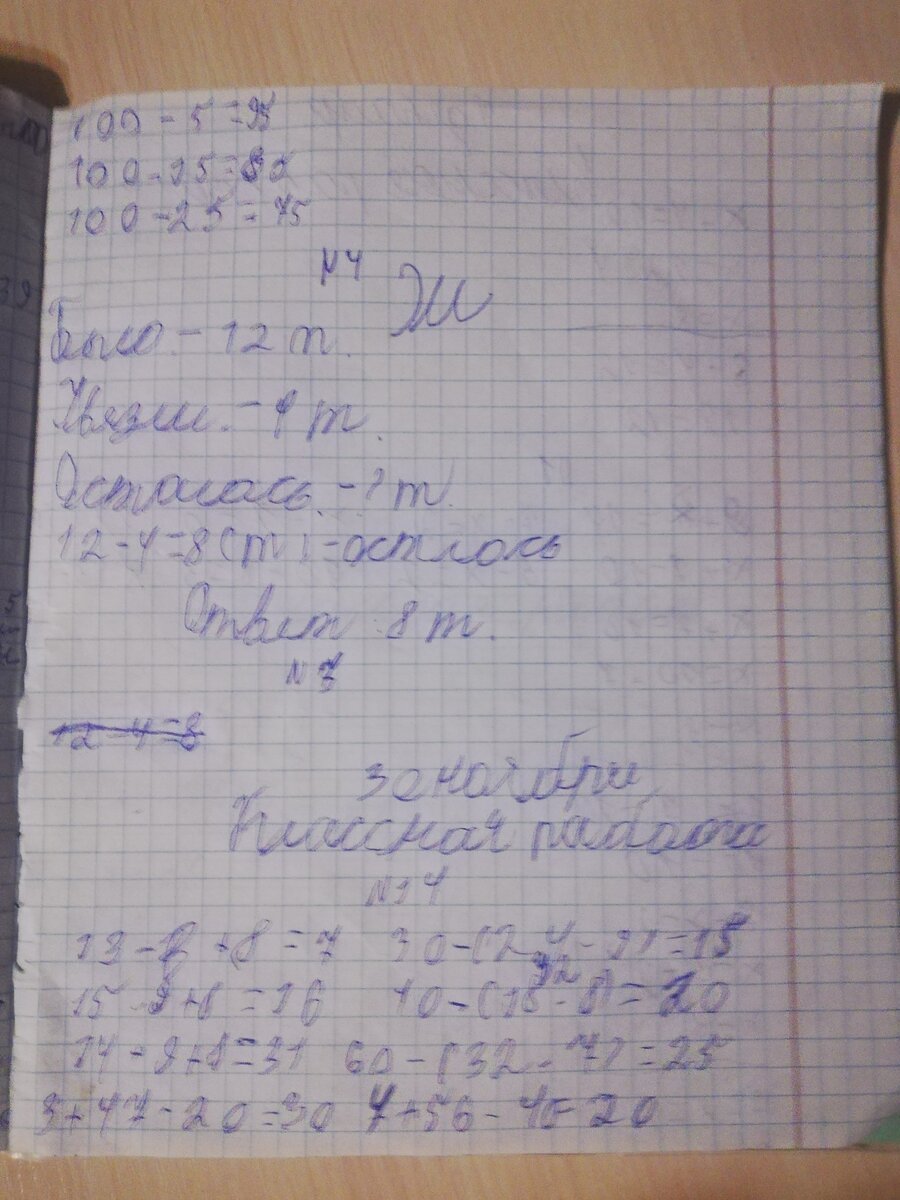 100 - 5 = 95
100 - 15 = 80
100 - 25 = 75
№4
Было. - 12 т.
Увезли. - 4 т.
Осталась. - ? т.
12 - 4 = 8 (т) - осталось
Ответ 8 т.
№
12 - 4 = 8
30 ноября
Классная работа
№14
+8 = 7 30 - (24 - 9) = 15
15 - 9 + 8 = 16 = 20
14 - 9 + 8 = 31 60 - (32 - 7) = 25
3 + 47 - 20 = 30 4 + 56 - 20